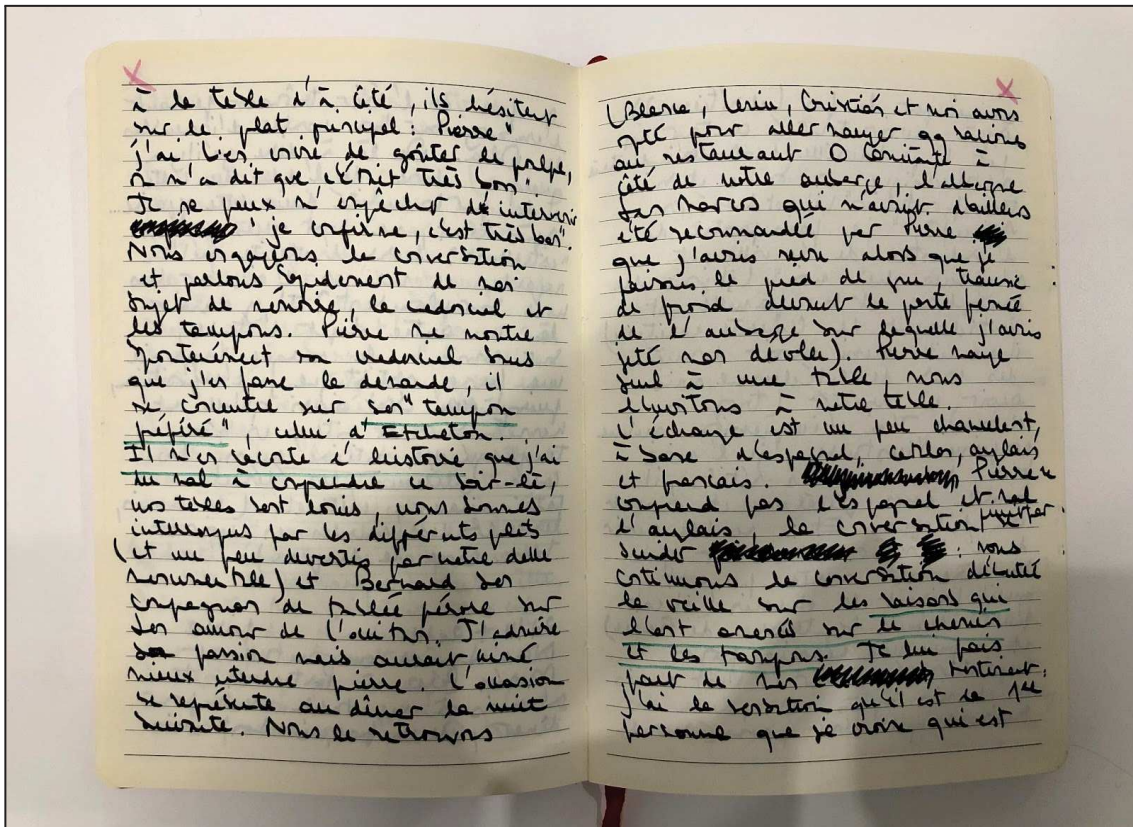 à la table d'à côté, ils hésitent
sur le plat principal : Pierre "
j'ai très envie de goûter le poulpe,
on m'a dit que c'était très bon"
Je ne peux m'empêcher d'intervenir
"je confirme, c'est très bon".
Nous engageons la conversation
et parlons rapidement de mon
sujet de mémoire, la credencial et
les tampons. Pierre me montre
spontanément sa credencial sans
que j'en fasse la demande, il
se concentre sur son "tampon
préféré", celui d'Etcheton.
Il m'en raconte l'histoire que j'ai
du mal à comprendre ce soir-là,
nos tables sont loins, nous sommes
interrompus par les différents plats
(et un peu divertis par notre dalle
monumentale) et Bernard son
compagnon de tablée pérore sur
son amour de l'
J'admire
sa passion mais aurait aimé
mieux entendre pierre. L'occasion
se représente au dîner la nuit
suivante. Nous le retrouvons
(Blanca, Cristián et moi avons
opté pour aller manger
au restaurant O à
côté de notre auberge, l'alberge
San Marcos qui m'avait d'ailleurs
été recommandée par Pierre
que j'avais revu alors que je
faisais le pied de grue, transie
de froid devant la porte fermée
de l'auberge sur laquelle j'avais
jeté mon dévolu). Pierre mange
seul à une table, nous
l'invitons à notre table.
L'échange est un peu chancelant,
à base d'espagnol, anglais
et français. Pierre ne
comprend pas l'espagnol et mal
l'anglais, la conversation
nous
continuons la conversation débutée
la veille sur les raisons qui
l'ont amenés sur le chemin
et les tampons. Je lui fais
part de mon
j'ai la sensation qu'il est la 1re
personne que je croise qui est